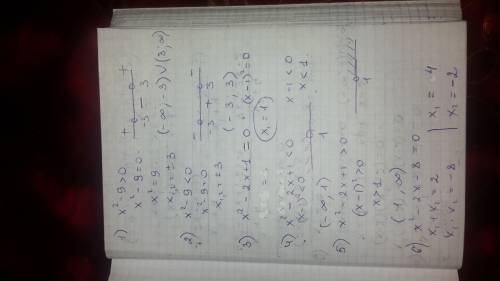 1) x² - 9 > 0
x² - 9 = 0
x² = 9
x₁,₂ = ± 3
+ - +
-3 3
(-∞; -3) ∪ (3; ∞)
2) x² - 9 < 0
x² - 9 = 0
x₁,₂ = ± 3
- + -
-3 3
(-3; 3)
3) x² - 2x + 1 = 0
(x-1) = 0
x₁ = 1
4) x² - 2x + 1 < 0
(x-1)² < 0
x - 1 < 0
x < 1
1
(-∞, 1)
5) x² - 2x + 1 > 0
(x-1)² > 0
x > 1
1
(1, ∞)
6) x² - 2x - 8 = 0
x₁ + x₂ = 2
x₁ · x₂ = -8
x₁ = 4
x₂ = -2